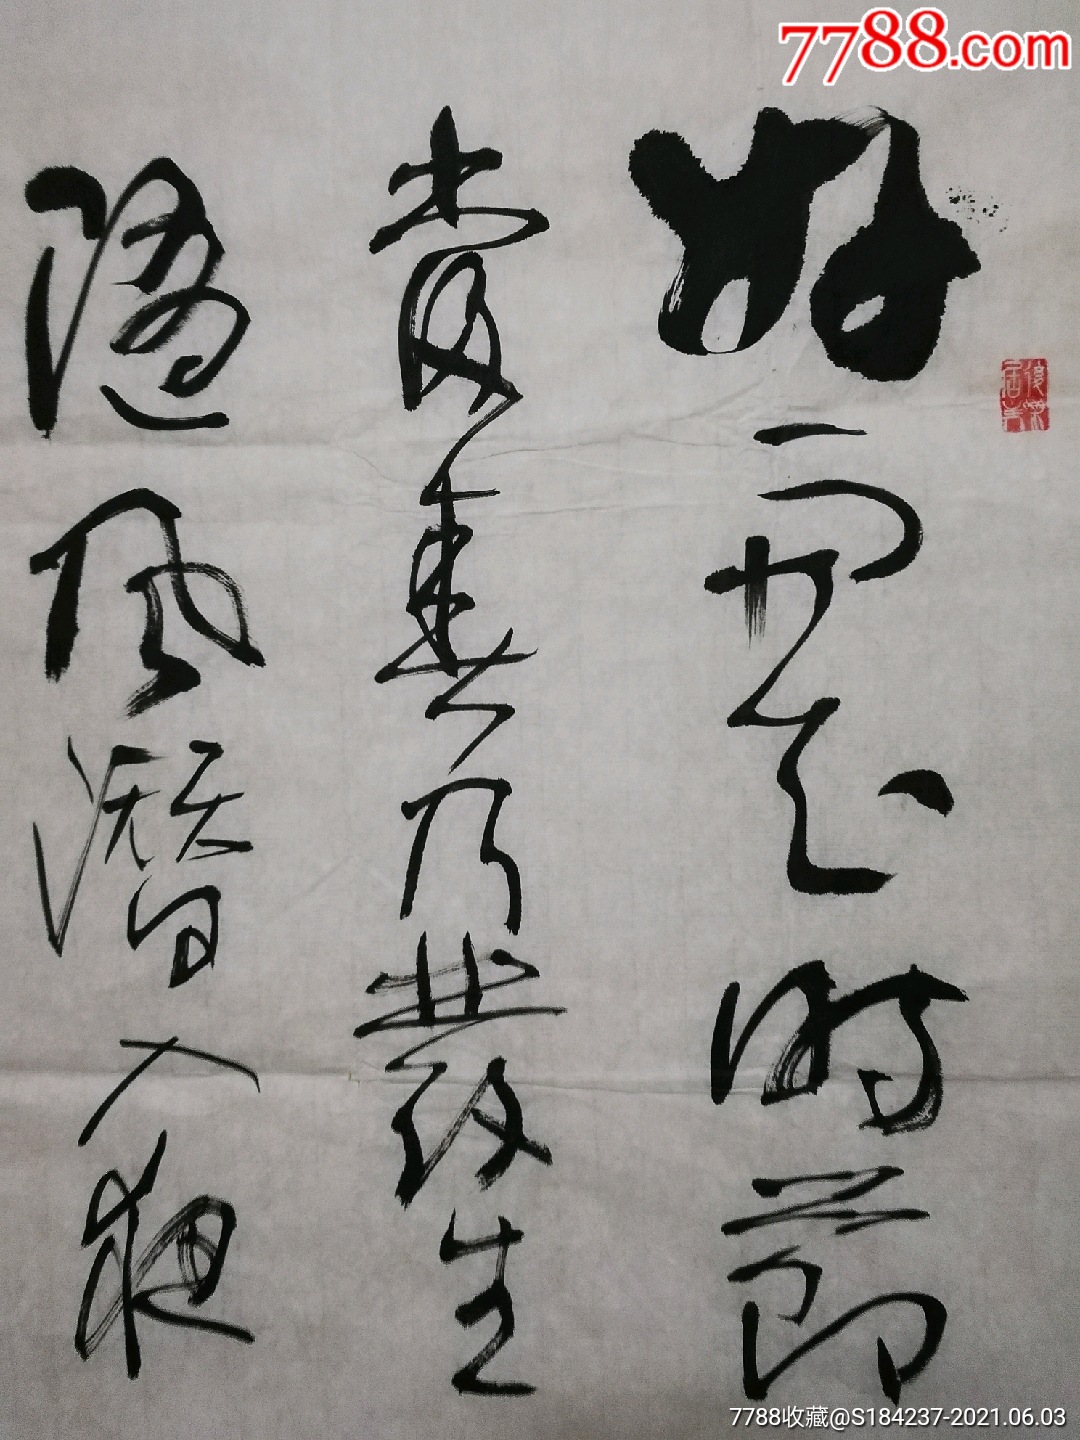 7788.com
好雨知時節
當春乃發生
隨風潛入夜
7788收藏@S184237-2021.06.03